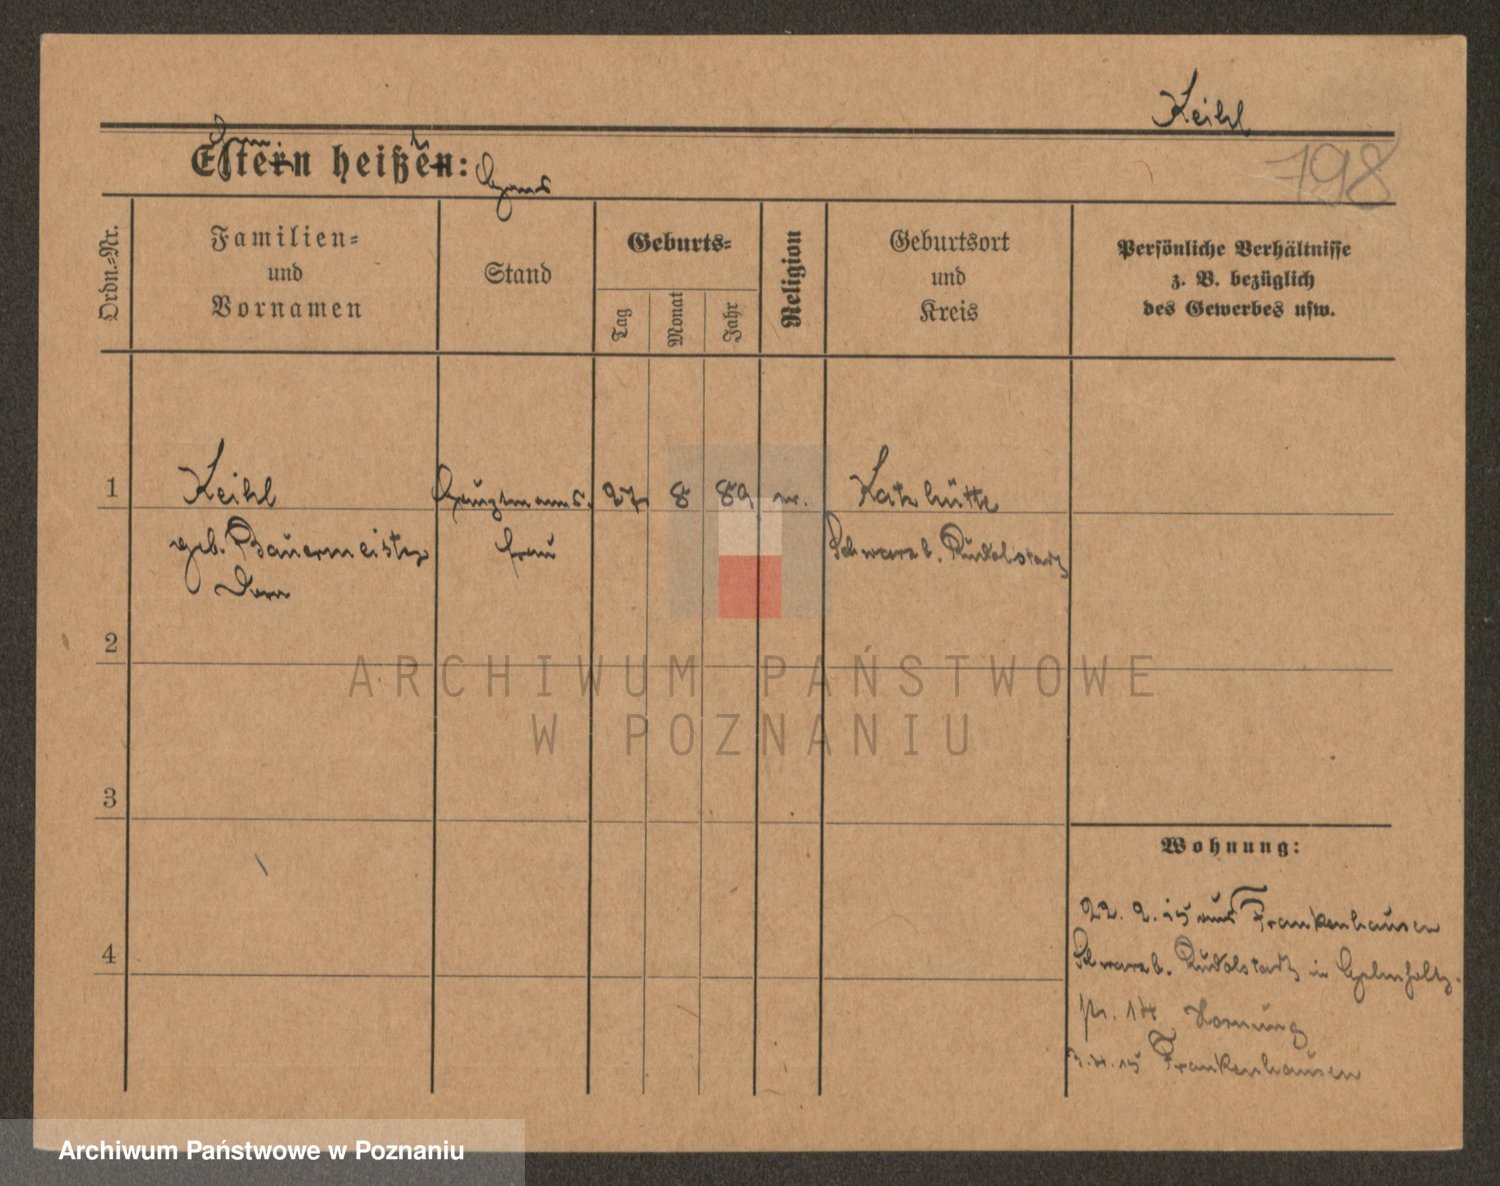 Keihl
198
Eltern heißen: Hans
Ordn.-Nr.
Familien-
und
Vornamen
Stand
Geburts-
Tag
Monat
Jahr
Religion
Geburtsort
und
Kreis
Persönliche Verhältnisse
z. B. bezüglich
des Gewerbes usw.
1 Keihl Hauptmanns. 27 8 89 Katzhütte
geb. Bauermeister frau Schwarzb. Rudolstadt
2
ARCHIWUM PAŃSTWOWE
W POZNANIU
3
Wohnung:
22. 2. 15 aus Frankenhausen
4
Schwarzb. Rudolstadt in
14 Hornung
3.4.15 Frankenhausen
Archiwum Państwowe w Poznaniu